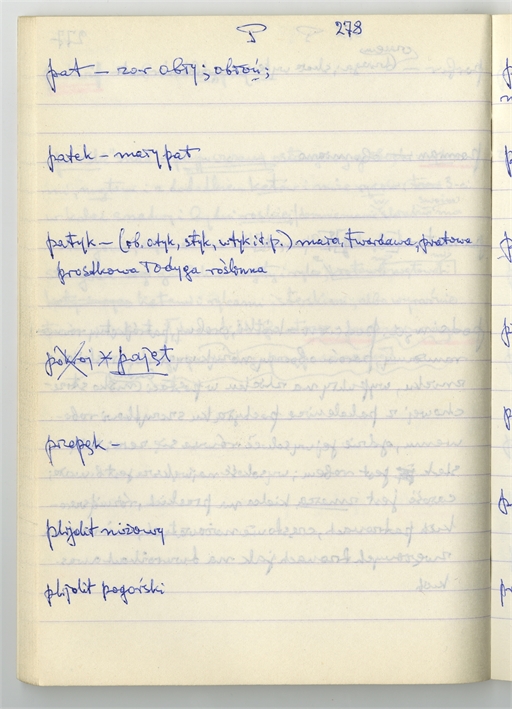 P 278
pat – zar obły; obłoń;
patek – mały pat
patyk – (ob. otyk, styk, wtyk i t. p.) mała, twardawa, prątowa
prostkowa łodyga roślinna
pokroj * pajęt
przepęk –
plijolit nizowy
plijolit pogorski